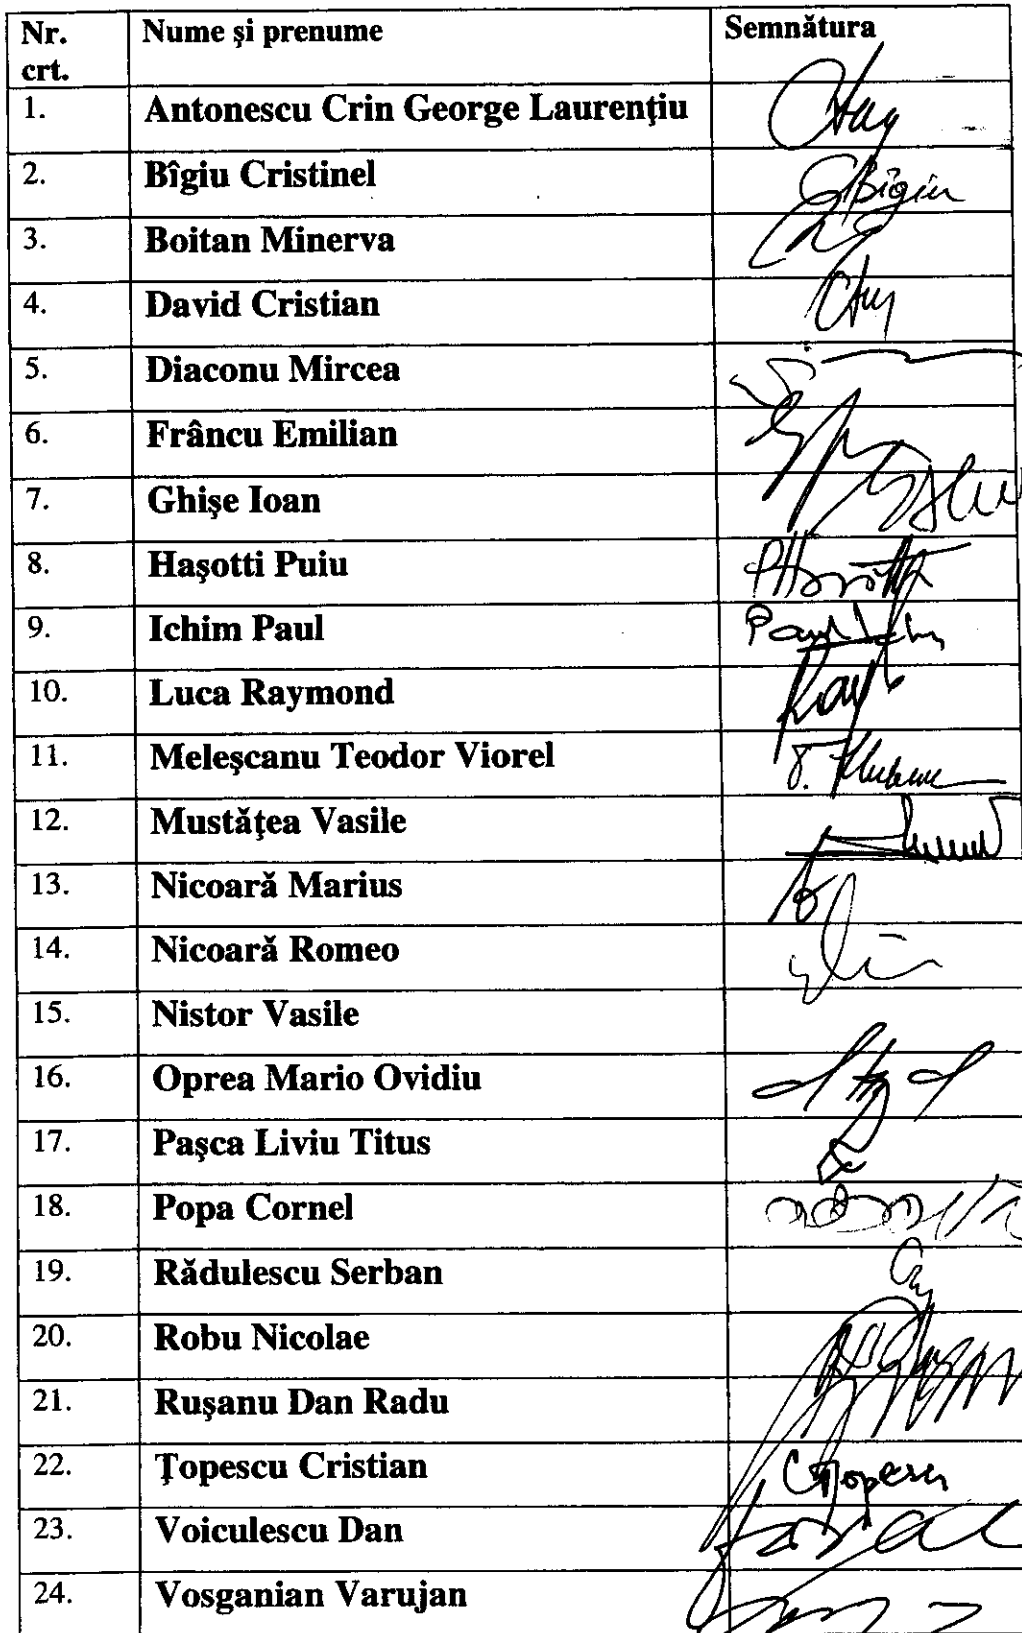 Nr. crt. Nume şi prenume Semnătura
1. Antonescu Crin George Laurenţiu
2. Bîgiu Cristinel CBîgiu
3. Boitan Minerva
4. David Cristian
5. Diaconu Mircea
6. Frâncu Emilian
7. Ghişe Ioan
8. Haşotti Puiu
9. Ichim Paul Paul Ichim
10. Luca Raymond
11. Meleşcanu Teodor Viorel
12. Mustăţea Vasile
13. Nicoară Marius
14. Nicoară Romeo
15. Nistor Vasile
16. Oprea Mario Ovidiu
17. Paşca Liviu Titus
18. Popa Cornel
19. Rădulescu Serban
20. Robu Nicolae
21. Ruşanu Dan Radu
22. Ţopescu Cristian CŢopescu
23. Voiculescu Dan
24. Vosganian Varujan